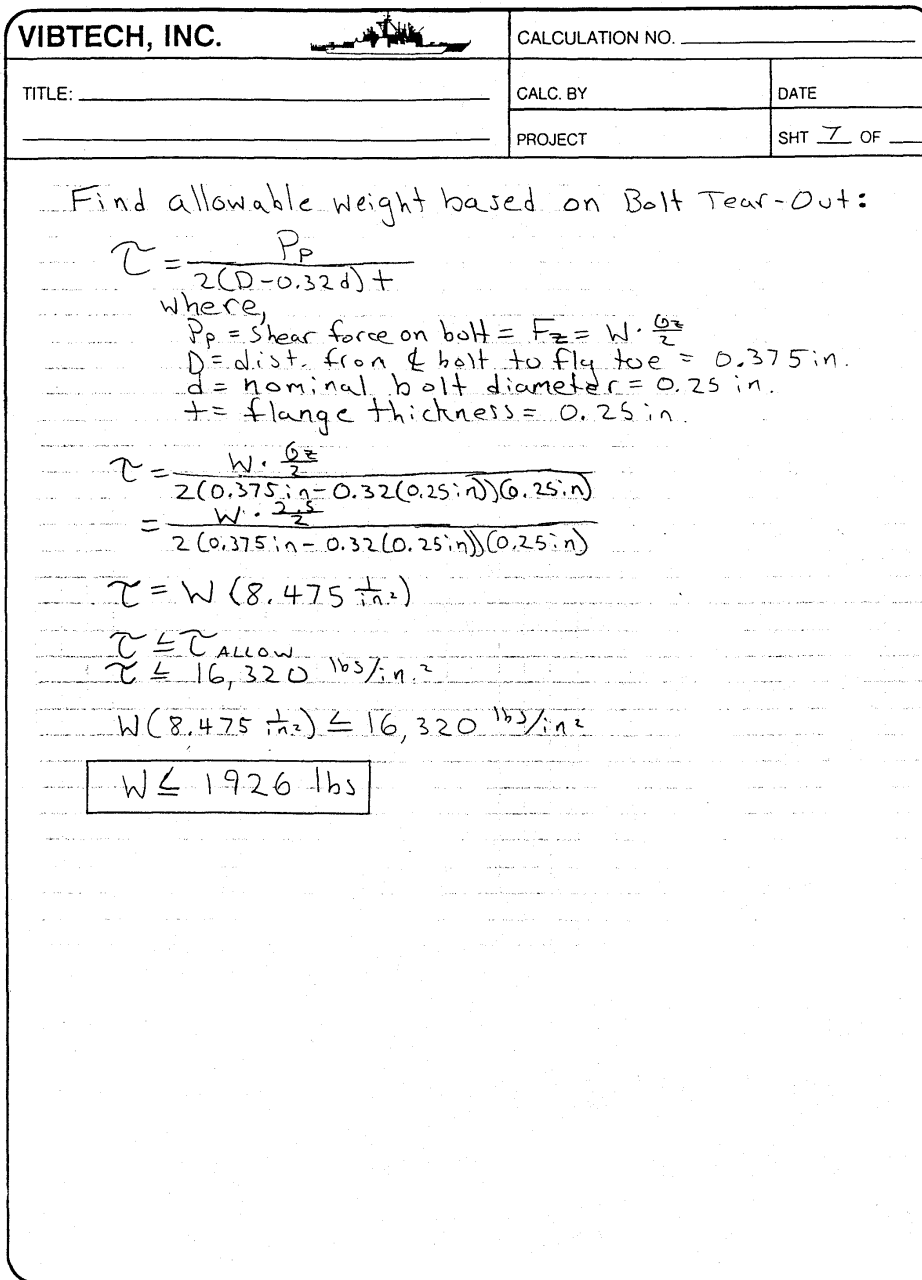 VIBTECH, INC.
CALCULATION NO.
TITLE:
CALC. BY
DATE
PROJECT
SHT 7 OF
Find allowable weight based on Bolt Tear-Out:
τ = Pp / 2(D-0.32d)t
where,
Pp = shear force on bolt = Fz = W · Gz/2
D = dist. from ℄ bolt to flg toe = 0.375 in.
d = nominal bolt diameter = 0.25 in.
t = flange thickness = 0.25 in.
τ = W · Gz/2 / 2(0.375 in - 0.32(0.25 in))(0.25 in)
= W · 2.5/2 / 2(0.375 in - 0.32(0.25 in))(0.25 in)
τ = W (8.475 1/in.²)
τ ≤ τ ALLOW
τ ≤ 16,320 lbs/in.²
W(8.475 1/in²) ≤ 16,320 lbs/in²
W ≤ 1926 lbs